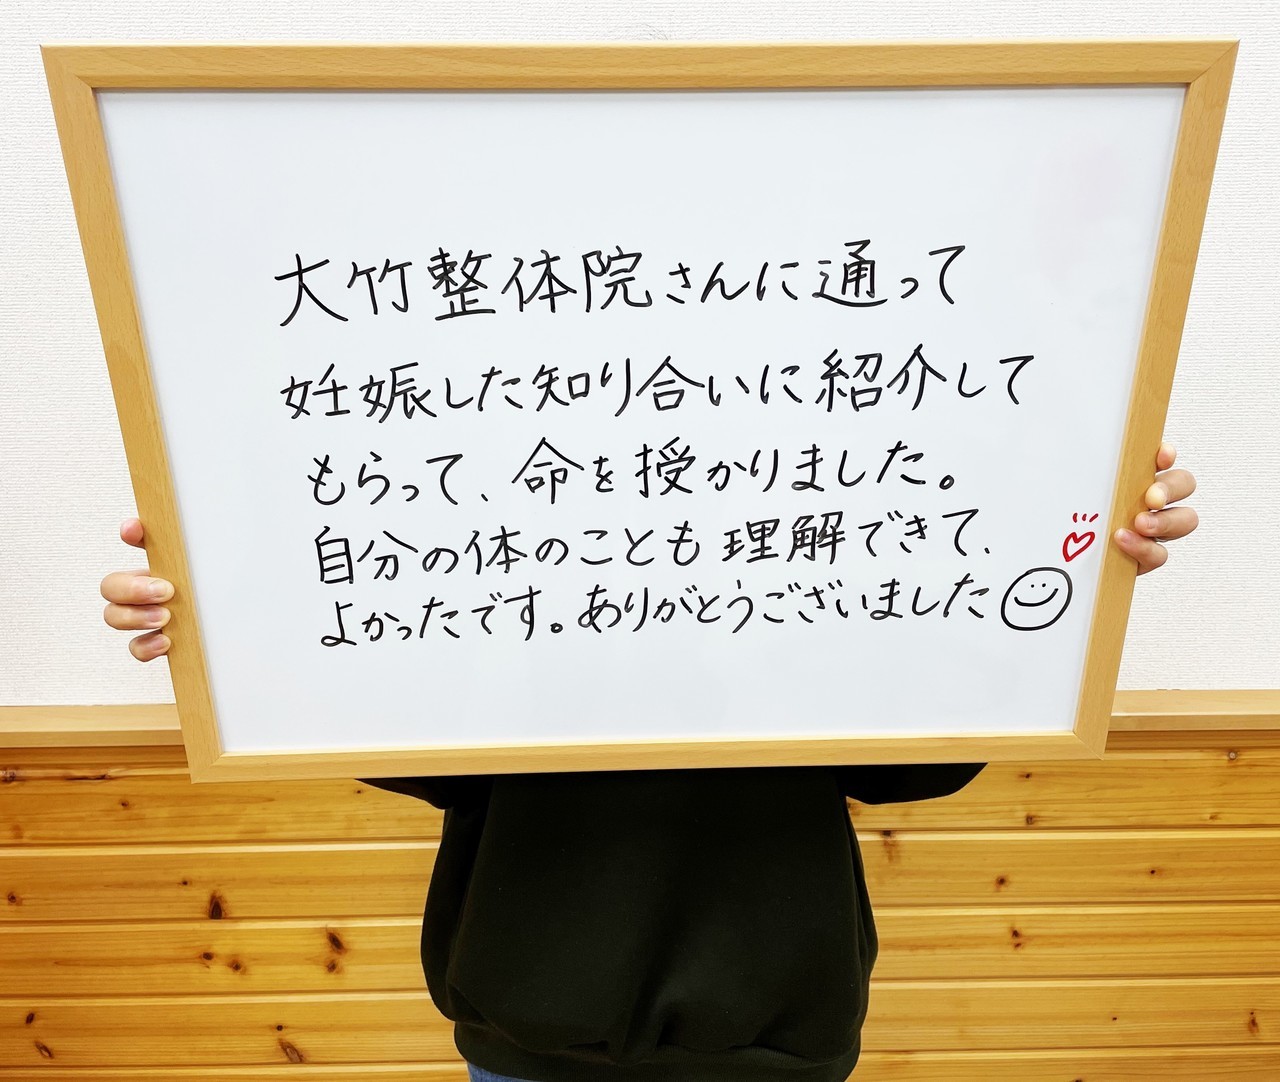 大竹整体院さんに通って
妊娠した知り合いに紹介して
もらって、命を授かりました。
自分の体のことも理解できて、
よかったです。ありがとうございました